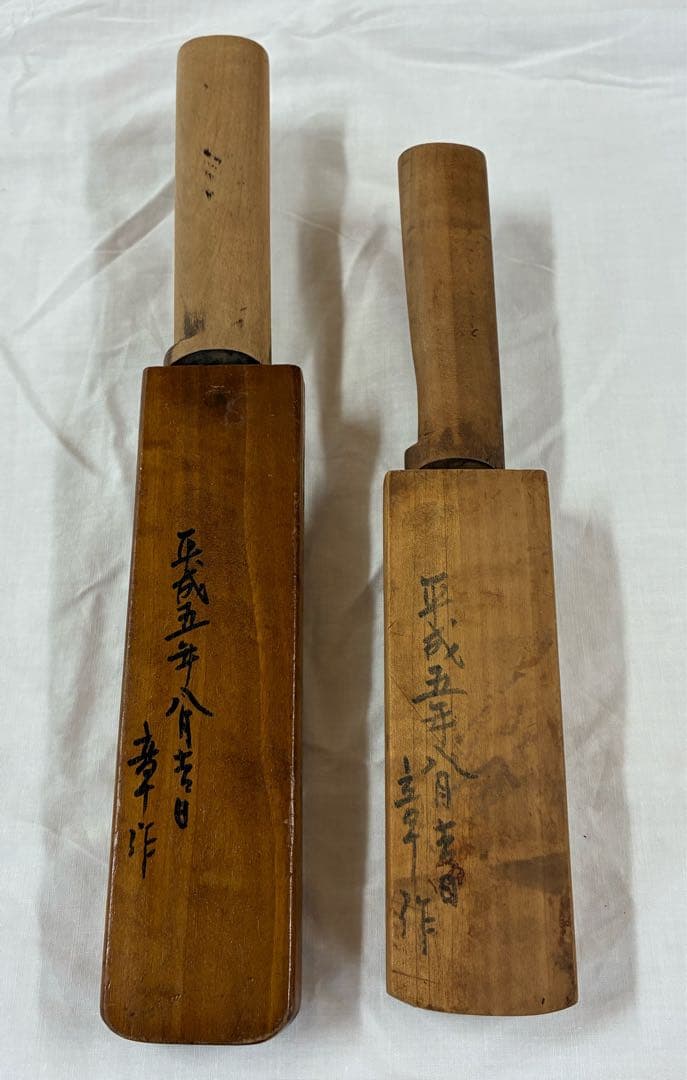 平成五年八月吉日
章作
平成五年八月吉日
章作